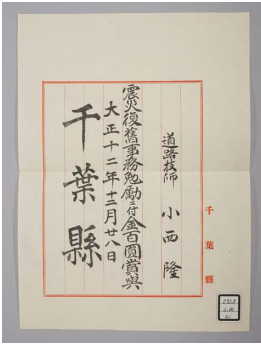 道路技師 小西隆
震災復舊事務勉勵ニ付金百圓賞與
大正十二年十二月廿八日
千葉縣
千葉縣